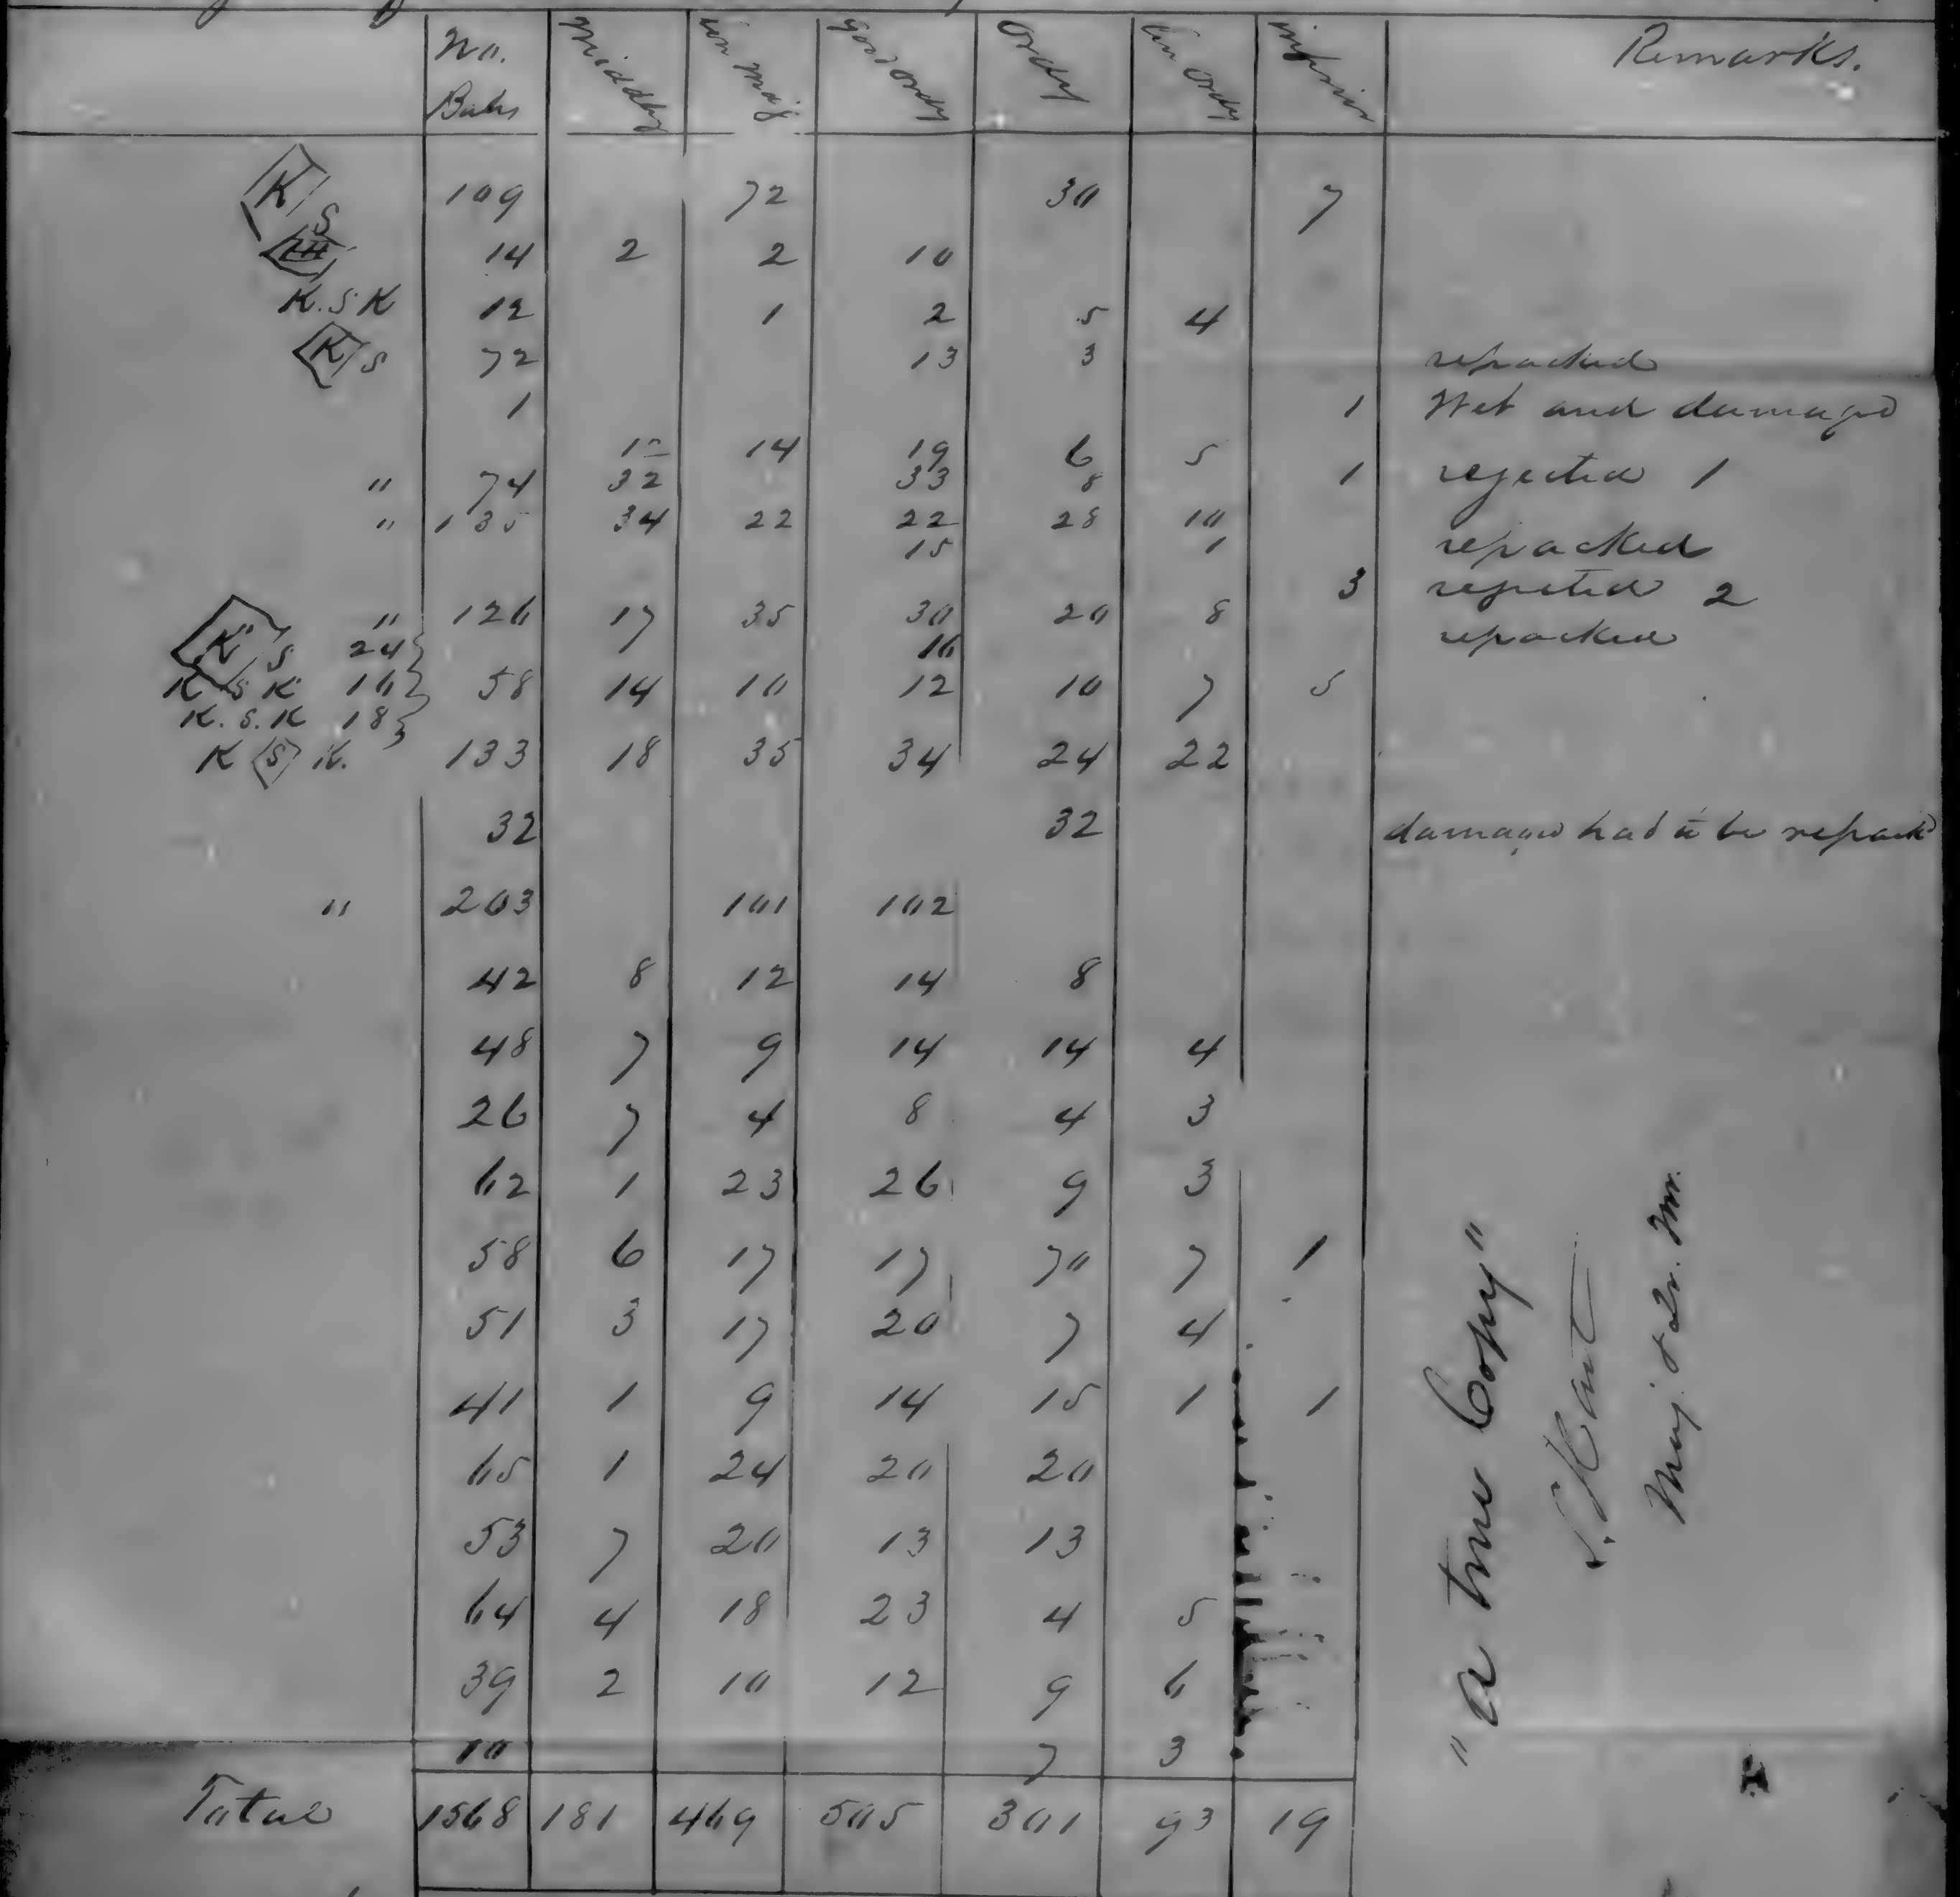 No. Bales Middlg Low Midg Good Ordy Ordy Low Ordy Inferior Remarks.
K S 109 72 30 7
14 2 2 10
K.S.K 12 1 2 5 4
K S 72 13 3 repacked
1 1 Wet and damaged
14 19 6 5
" 74 32 33 8 1 rejected 1
" 135 34 22 22 28 10
15 1 repacked
3 rejected 2
" 126 17 35 30 20 8
K S 24 16 repacked
K S K 16 58 14 10 12 10 7 5
K.S.K 18
K S K. 133 18 35 34 24 22
32 32 damaged had to be repackd
" 203 101 102
42 8 12 14 8
48 7 9 14 14 4
26 7 4 8 4 3
62 1 23 26 9 3
58 6 17 17 70 7 1
51 3 17 20 7 4
41 1 9 14 15 1 1
65 1 24 20 20
53 7 20 13 13
64 4 18 23 4 5
39 2 10 12 9 6
10 7 3
Total 1568 181 469 505 301 93 19
"a true Copy"
Maj. & Qr. Mr.